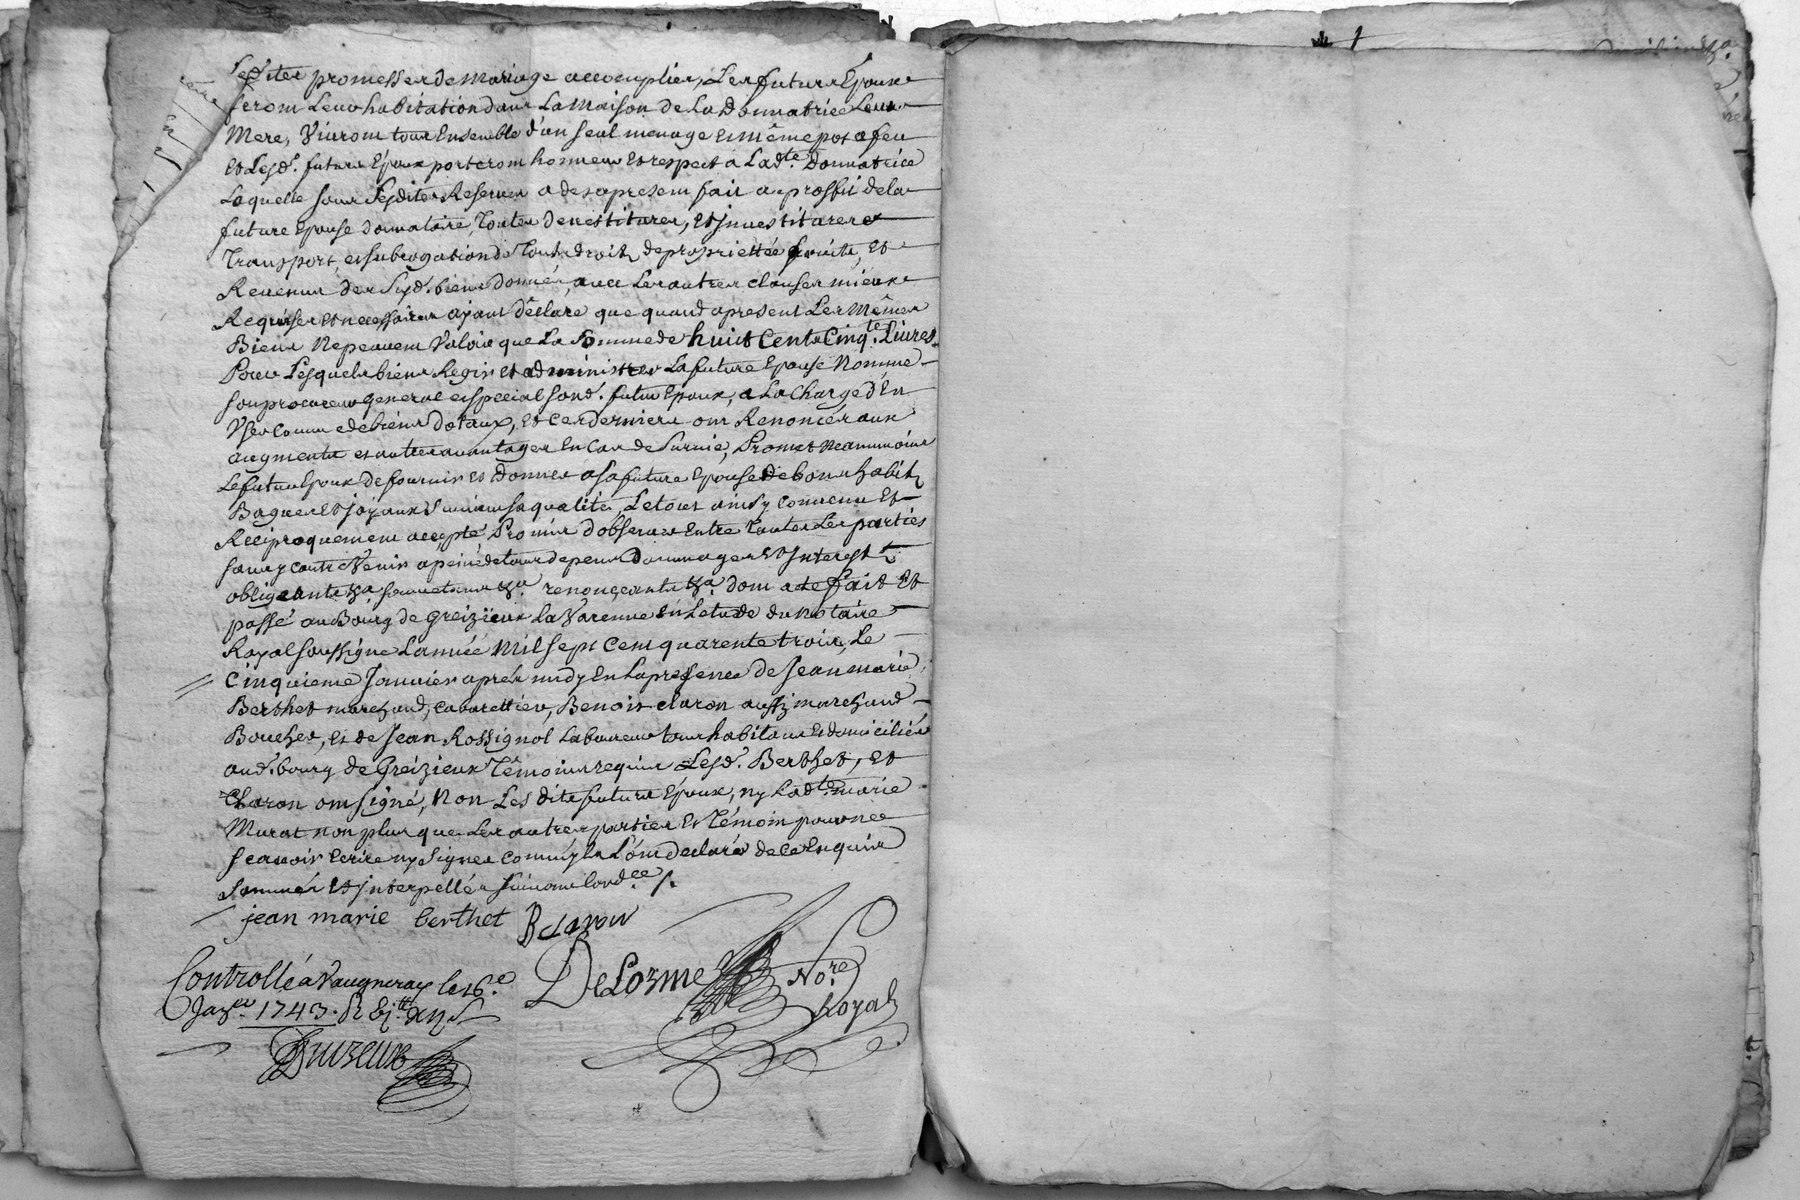 Lesdites promesses de mariage accomplies, Les futurs Epoux
feront Leur habitation dans La maison de La Donnatrice Leur
Mere, Vivront tous Ensemble d'un seul menage et même pot a feu
Et Lesds. futurs Epoux porteront honneur et respect a Ladte. Donnatrice
Laquelle sous Lesdites Reserves a des apresent fait au proffit de la
future Epouse donnataire, Toutes Devestitures, Et Jnvestitures
Transport, et subrogation de Touts droits de propriettée fruits, Et
Revenus des Susd. biens donnés, avec Les autres clauses mieux
Requises et necessaires ayant déclaré que quand apresent Les Mêmes
Biens Nepeuvent Valoir que La Somme de huit Cents Cinqte. Livres
Pour Lesquels biens Regir et administrer La future Epouse Nomme
son procureur general et special sond. futur Epoux, a La Charge d'En
User comme de biens dotaux, Et Ces derniers ont Renoncés aux
augments et autres avantages En Cas de Survie, Promet Neanmoins
Le futur Epoux de fournir et donner a sa future Epouse de bons habits
Bagues et joyaux suivant sa qualité, Le tout ainsy convenu Et
Reciproquement accepté Promis d'observer Entre toutes Les parties
sans y contrevenir a peine de tous depens Dommages Et Jnterests
obligeants &a. soumettants &a. renonçeants &a. dont acte fait Et
passé au Bourg de Greizieux La Varenne En Letude du Notaire
Royal soussigné L'année Mil sept Cent quarente trois, Le
Cinquieme Janvier après midy En La presence de Jean marie
Berthet marchand, cabarettier, Benoit claron aussy marchand
Boucher, Et de Jean Rossignol Laboureur tous habitans Et domiciliés
aud. bourg de Greizieux Témoins requis Lesd. Berthet, Et
Claron ont signé, Non Les dits futurs Epoux, ny Ladte. marie
Murat non plus que Les autres parties Et Témoin pour ne
scavoir Ecrire ny signer comm'ils L'ont declaré de ce Enquis
Sommés Et Jnterpellés suivant Lordce. /.
jean marie berthet B claron
DeLorme Nore. Royal
Controllé a Vaugneray le 16e.
Janer. 1743. R